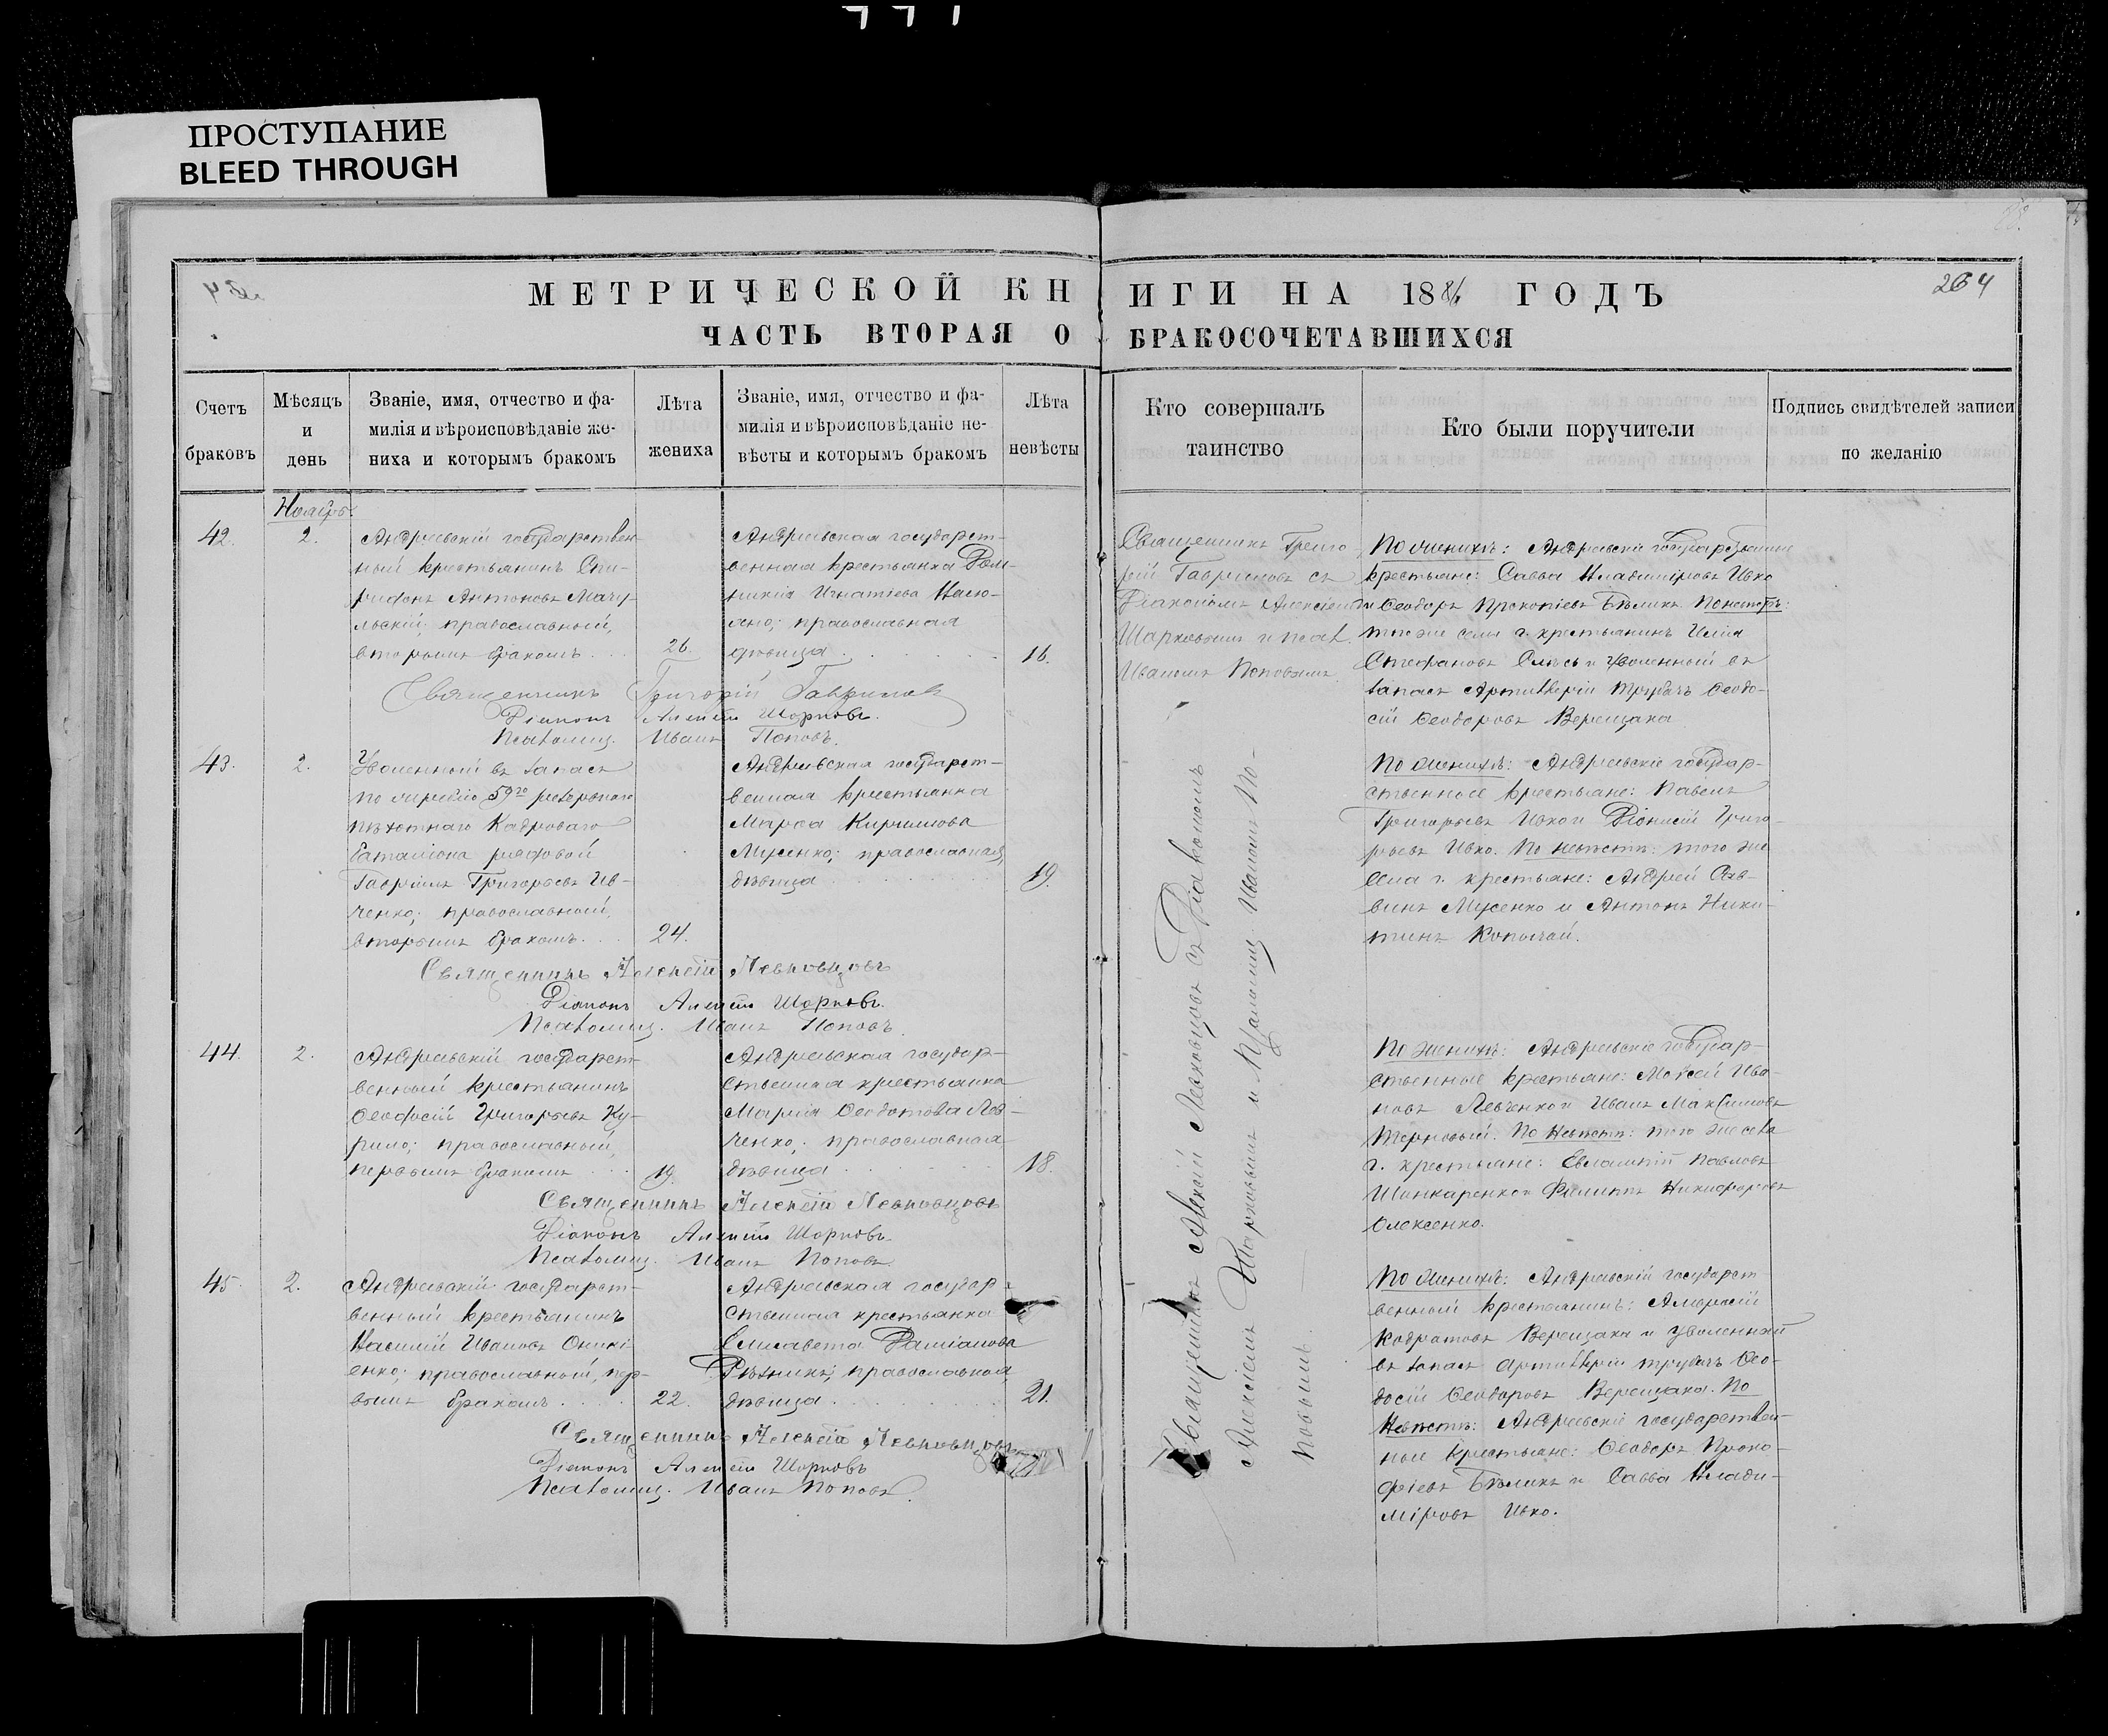 ПРОСТУПАНИЕ
BLEED THROUGH
264
МЕТРИЧЕСКОЙ КНИГИ НА 188 ГОДЪ
ЧАСТЬ ВТОРАЯ О БРАКОСОЧЕТАВШИХСЯ
Счетъ браковъ
Мѣсяцъ и день
Званіе, имя, отчество и фа-
милія и вѣроисповѣданіе же-
ниха и которымъ бракомъ
Лѣта жениха
Званіе, имя, отчество и фа-
милія и вѣроисповѣданіе не-
вѣсты и которымъ бракомъ
Лѣта невѣсты
Кто совершалъ
таинство
Кто были поручители
Подпись свидѣтелей записи
по желанію
Ноябрь
42.
2.
Андреевскій государствен-
ный крестьянинъ Спи-
ридонъ Антоновъ Мачу-
льскій; православный,
вторымъ бракомъ
26.
Андреевская государст-
венная крестьянка
Игнатіева
православная
дѣвица
16.
Священникъ Григо-
рій Гавриловъ съ
Діакономъ Алексіемъ
Шарковымъ и псал.
Иваномъ Поповымъ.
По женихѣ: Андреевскіе государственные
крестьяне: Савва Владиміровъ Ивко
и Ѳеодоръ Прокопіевъ Бѣликъ. По невѣстѣ:
того же села г. крестьянинъ Илія
Стефановъ и уволенный въ
запасъ Артиллеріи трубачъ Ѳеодо-
сій Ѳеодоровъ Верещака
Священникъ Григорій Гавриловъ
Діаконъ Алексѣй Шарковъ.
Псаломщ. Иванъ Поповъ.
43.
2.
Уволенный въ запасъ
59го резервнаго
пѣхотнаго Кадроваго
баталіона рядовой
Гавріилъ Григорьевъ Ив-
ченко; православный,
вторымъ бракомъ
24.
Андреевская государст-
венная крестьянка
Марѳа Кириллова
Мусенко; православная,
дѣвица
19.
По женихѣ: Андреевскіе государ-
ственные крестьяне: Павелъ
Григорьевъ Ивко и Діонисій Григо-
рьевъ Ивко. По невѣстѣ: того же
села г. крестьяне: Андрей Сав-
винъ Мусенко и Антонъ Ники-
тинъ
Священникъ Алексій Левковцовъ
Діаконъ Алексѣй Шарковъ.
Псаломщ. Иванъ Поповъ.
44.
2.
Андреевскій государст-
венный крестьянинъ
Ѳеодосій Григорьевъ Ку-
рило; православный,
первымъ бракомъ
19.
Андреевская государ-
ственная крестьянка
Марія Ѳеодотова Лев-
ченко; православная
дѣвица
18.
По женихѣ: Андреевскіе государ-
ственные крестьяне: Моѵсей Ива-
новъ Левченко и Иванъ Максимовъ
Терновый. По невѣстѣ: того же села
г. крестьяне: Евлампій Павловъ
Шинкаренко и Филиппъ Никифоровъ
Олексенко.
Священникъ Алексій Левковцовъ
Діаконъ Алексѣй Шарковъ.
Псаломщ. Иванъ Поповъ.
45.
2.
Андреевскій государст-
венный крестьянинъ
Василій Ивановъ Оникі-
енко; православный, пер-
вымъ бракомъ
22.
Андреевская государ-
ственная крестьянка
Елисавета Даміанова
Рѣзникъ; православная
дѣвица
21.
По женихѣ: Андреевскій государст-
венный крестьянинъ: Амвросій
Кодратовъ Верещака и уволенный
въ запасъ артиллеріи трубачъ Ѳео-
досій Ѳеодоровъ Верещака. По
невѣстѣ: Андреевскіе государствен-
ные крестьяне: Ѳеодоръ Проко-
фіевъ Бѣликъ и Савва Влади-
міровъ Ивко.
Священникъ Алексій Левковцовъ
Діаконъ Алексѣй Шарковъ
Псаломщ. Иванъ Поповъ.
Священникъ Алексій Левковцовъ съ Діакономъ
Алексіемъ Шарковымъ и Псаломщ. Иваномъ По-
повымъ.